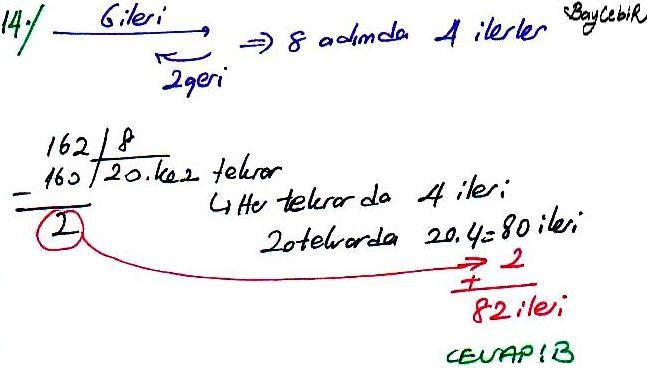 14./ 6 ileri
BayCebiR
2 geri
⇒ 8 adımda 4 ilerler
162 / 8
- 160 / 20. kez tekrar
2
↳ Her tekrarda 4 ileri
20 tekrarda 20.4=80 ileri
+ 2
82 ileri
CEVAP: B